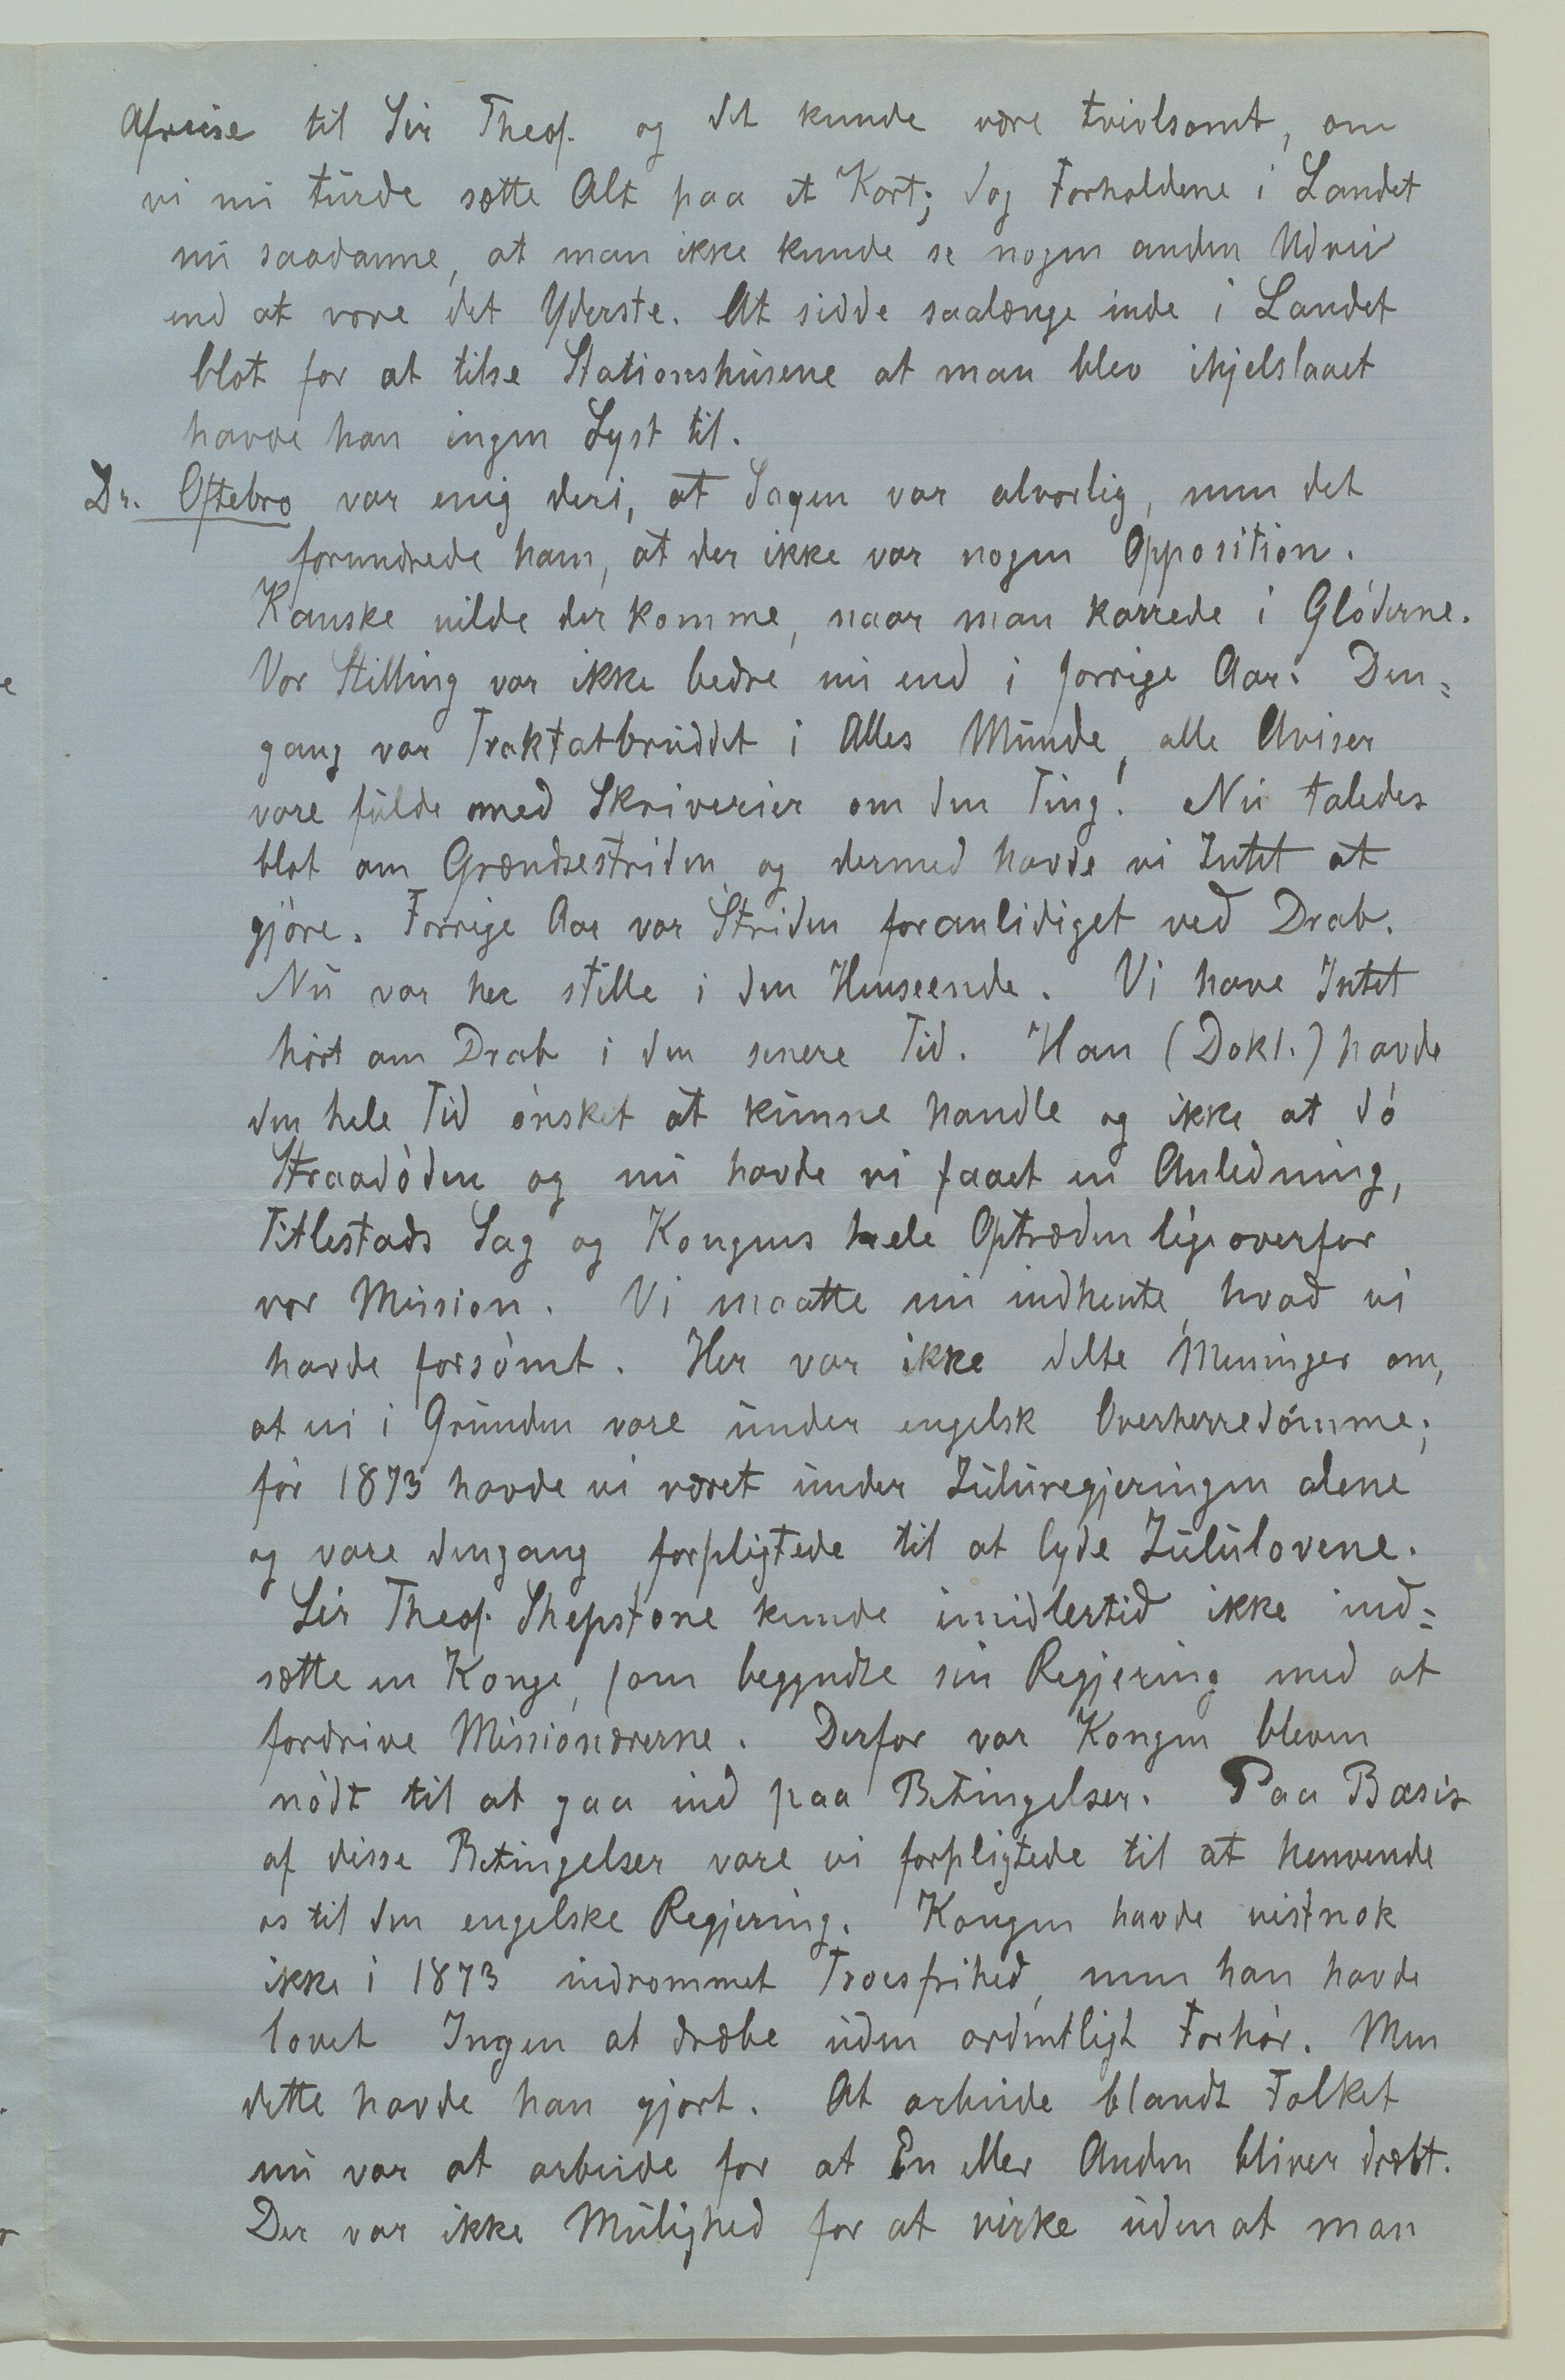 Afreise til Sir Theof. og det kunde være tvivlsomt, om
vi nu turde sætte Alt paa et Kort; dog Forholdene i Landet
nu saadanne, at man ikke kunde se nogen anden Udvei
end at vove det Yderste. At sidde saalænge inde i Landet
blot for at tilse Stationshusene at man blev ihjelslaaet
havde han ingen Lyst til.
Dr. Oftebro var enig deri, at Sagen var alvorlig, men det
forundrede ham, at der ikke var nogen Opposition.
Kanske vilde der komme, naar man karrede i Glöderne.
Vor Stilling var ikke bedre nu end i forrige Aar. Den=
gang var Traktatbruddet i Alles Munde, alle Aviser
vare fulde med Skriverier om den Ting! Nu taledes
blot om Grændsestriden og dermed havde vi Intet at
gjöre. Forrige Aar var Striden foranlediget ved Drab.
Nu var her stille i den Henseende. Vi have Intet
hört om Drab i den senere Tid. Han (Dokt.) havde
den hele Tid önsket at kunne handle og ikke at dö
Straadöden og nu havde vi faaet en Anledning,
Titlestads Sag og Kongens hele Optræden ligeoverfor
vor Mission. Vi maatte nu indhente, hvad vi
havde forsömt. Her var ikke delte Meninger om,
at vi i Grunden vare under engelsk Overherredömme;
för 1873 havde vi været under Zuluregjeringen alene
og vare dengang forpligtede til at lyde Zululovene.
Sir Theof. Shepstone kunde imidlertid ikke ind=
sætte en Konge, som begyndte sin Regjering med at
fordrive Missionærerne. Derfor var Kongen bleven
nödt til at gaa ind paa Betingelser. Paa Basis
af disse Betingelser vare vi forpligtede til at henvende
os til den engelske Regjering. Kongen havde vistnok
ikke i 1873 indrommet Troesfrihed, men han havde
lovet Ingen at dræbe uden ordentligt Forhör. Men
dette havde han gjort. At arbeide blandt Folket
nu var at arbeide for at En eller Anden bliver dræbt.
Der var ikke Mulighed for at virke uden at man